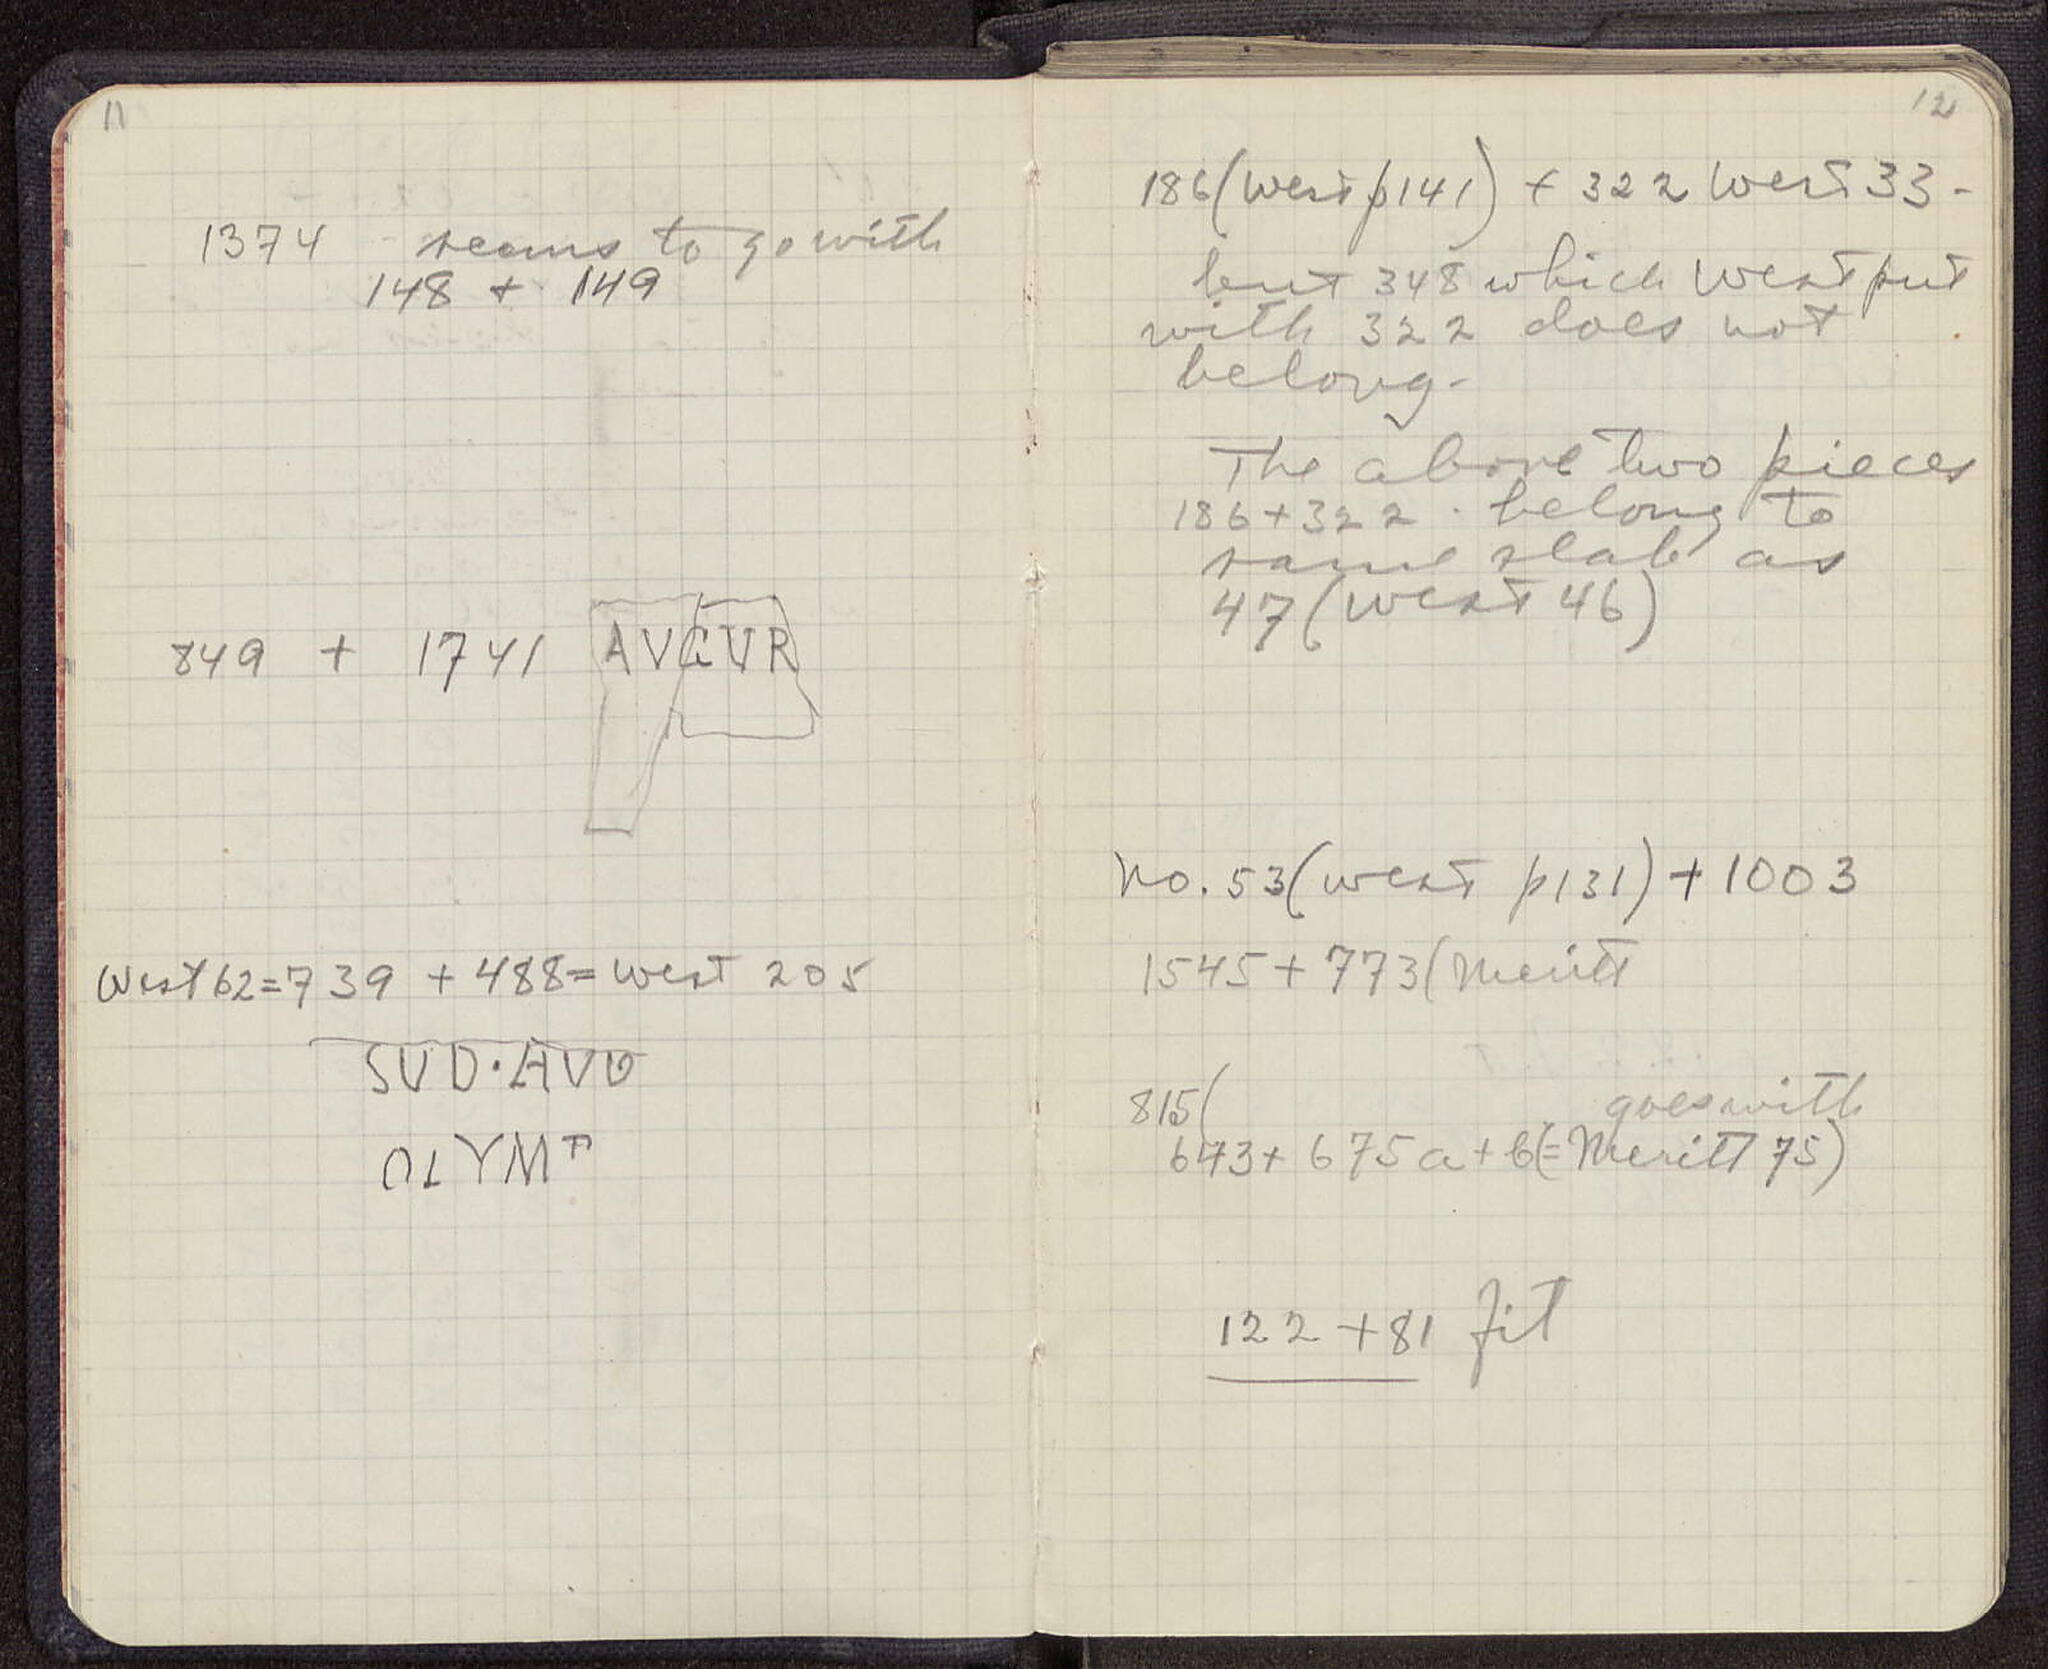 11
1374 seems to go with
148 + 149
849 + 1741 AVGVR
West 62 = 739 + 488 = West 205
SVD·AVG
OLYMP
12
186 (West p 141) + 322 West 33 -
but 348 which West put
with 322 does not
belong -
The above two pieces
186 + 322 . belong to
same slab as
47 (West 46)
No. 53 (West p 131) + 1003
1545 + 773 (Meritt
815 (
goes with
673 + 675 a + b (= Meritt 75)
122 + 81 fit